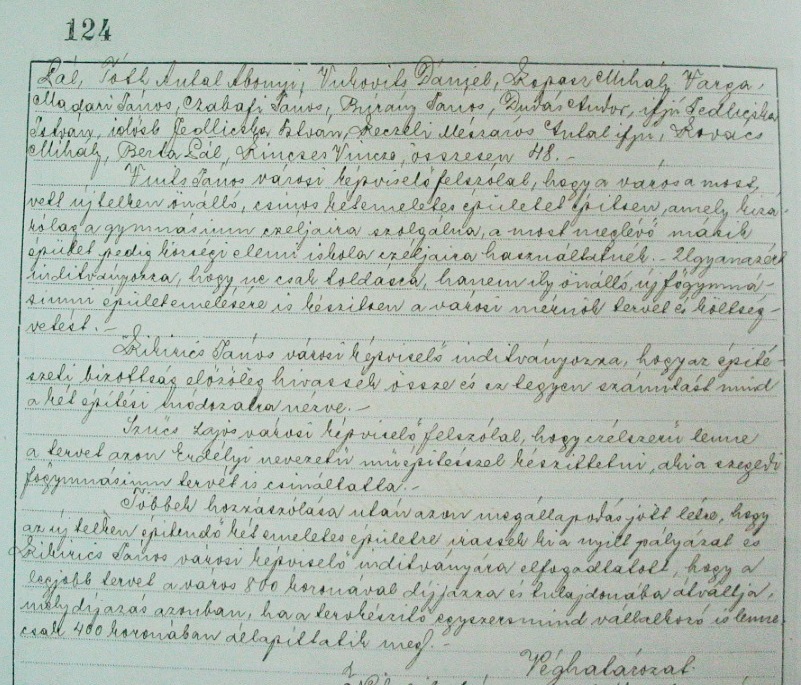 124
Pál, Tóth Antal Abonyi, Vukovits Dániel, Kopasz Mihály Varga,
Magyari János, Czabafi János, Burány János, Dudás Andor, ifjú Jedlicska
István, idősb Jedlicska István, Keczeli Mészáros Antal ifjú, Kovács
Mihály, Berta Pál, Kincses Vincze, összesen 48.-
Vuits János városi képviselő felszólal, hogy a város a most
vett új telken önálló, csinos kétemeletes épületet építsen, amely kizá-
rólag a gymnásium czéljaira szolgálna, a most meglévő másik
épület pedig községi elemi iskola czéljaira használtatnék.- Ugyanazért
indítványozza, hogy ne csak toldásra, hanem ily önálló, új főgymná-
sium épület emelésére is készítsen a városi mérnök tervet és költség-
vetést.-
Zsikirics János városi képviselő indítványozza, hogy az építé-
szeti bizottság előzőleg hivassék össze és ez tegyen számítást mind
a két építési módozatra nézve.-
Szűcs Lajos városi képviselő felszólal, hogy czélszerű lenne
a tervet azon Erdélyi nevezetű műépítésszel készíttetni, aki a szegedi
főgymnásium tervét is csináltatta.-
Többek hozzászólása után azon megállapodás jött létre, hogy
az új telken építendő két emeletes épületre írassék ki a nyílt pályázat és
Zsikirics János városi képviselő indítványára elfogadtatott, hogy a
legjobb tervet a város 800 koronával díjazza és tulajdonába átvállja,
mely díjazás azonban, ha a tervkészítő egyszersmind vállalkozó is lenne
csak 400 koronában állapíttatik meg.-
Véghatározat.